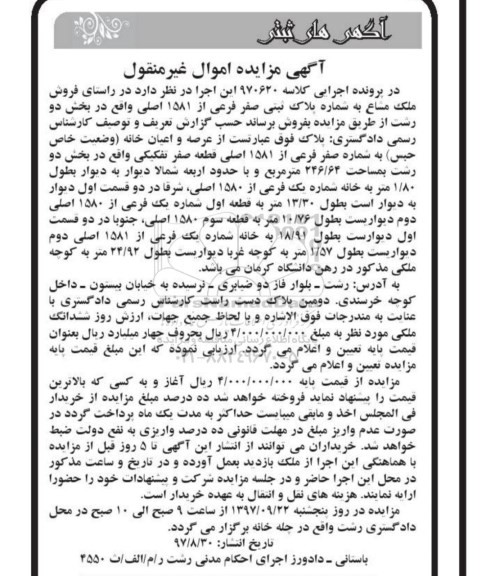 آگهی های ثبتی
آگهی مزایده اموال غیرمنقول
در پرونده اجرایی کلاسه ۹۷۰۶۲۰ این اجرا در نظر دارد در راستای فروش
ملک مشاع به شماره پلاک ثبتی صفر فرعی از ۱۵۸۱ اصلی واقع در بخش دو
رشت از طریق مزایده بفروش برساند حسب گزارش تعریف و توصیف کارشناس
رسمی دادگستری: پلاک فوق عبارتست از عرصه و اعیان خانه (وضعیت خاص
حبس) به شماره صفر فرعی از ۱۵۸۱ اصلی قطعه صفر تفکیکی واقع در بخش دو
رشت بمساحت ۲۴۶/۶۴ مترمربع و با حدود اربعه شمالا دیوار به دیوار بطول
۱/۸۰ متر به خانه شماره یک فرعی از ۱۵۸۰ اصلی، شرقا در دو قسمت اول دیوار
به دیوار است بطول ۱۳/۳۰ متر به قطعه اول شماره یک فرعی از ۱۵۸۰ اصلی
دوم دیواریست بطول ۱۰/۷۶ متر به قطعه سوم ۱۵۸۰ اصلی، جنوبا در دو قسمت
اول دیواریست بطول ۱۸/۹۱ به خانه شماره یک فرعی از ۱۵۸۱ اصلی دوم
دیواریست بطول ۱/۵۷ متر به کوچه غربا دیواریست بطول ۲۴/۹۲ متر به کوچه
ملکی مذکور در رهن دانشگاه کرمان می باشد.
به آدرس: رشت ـ بلوار فاز دو ضیابری ـ نرسیده به خیابان بیستون ـ داخل
کوچه خرسندی، دومین پلاک دست راست کارشناس رسمی دادگستری با
عنایت به مندرجات فوق الاشاره و با لحاظ جمیع جهات، ارزش روز ششدانگ
ملکی مورد نظر به مبلغ ۴/۰۰۰/۰۰۰/۰۰۰ ریال بحروف چهار میلیارد ریال بعنوان
قیمت پایه تعیین و اعلام می گردد. ارزیابی نموده که این مبلغ قیمت پایه
مزایده تعیین و اعلام می گردد.
مزایده از قیمت پایه ۴/۰۰۰/۰۰۰/۰۰۰ ریال آغاز و به کسی که بالاترین
قیمت را پیشنهاد نماید فروخته خواهد شد ده درصد مبلغ مزایده از خریدار
فی المجلس اخذ و مابقی میبایست حداکثر به مدت یک ماه پرداخت گردد در
صورت عدم واریز مبلغ در مهلت قانونی ده درصد واریزی به نفع دولت ضبط
خواهد شد. خریداران می توانند از انتشار این آگهی تا ۵ روز قبل از مزایده
با هماهنگی این اجرا از ملک بازدید بعمل آورده و در تاریخ و ساعت مذکور
در محل این اجرا حاضر و در جلسه مزایده شرکت و پیشنهادات خود را حضورا
ارایه نمایند. هزینه های نقل و انتقال به عهده خریدار است.
مزایده در روز پنجشنبه ۱۳۹۷/۰۹/۲۲ از ساعت ۹ صبح الی ۱۰ صبح در محل
دادگستری رشت واقع در چله خانه برگزار می گردد.
تاریخ انتشار: ۹۷/۸/۳۰
باستانی ـ دادورز اجرای احکام مدنی رشت ر/م/الف/ث ۴۵۵۰